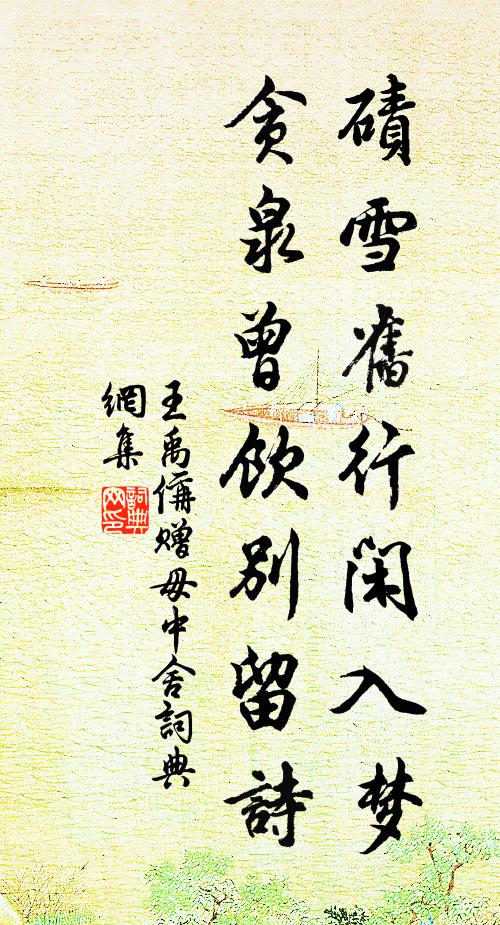 磧雪舊行閑入梦
貪泉曾飲别留詩
王禹偁贈毋中舍詞典
網集
詞典
网印